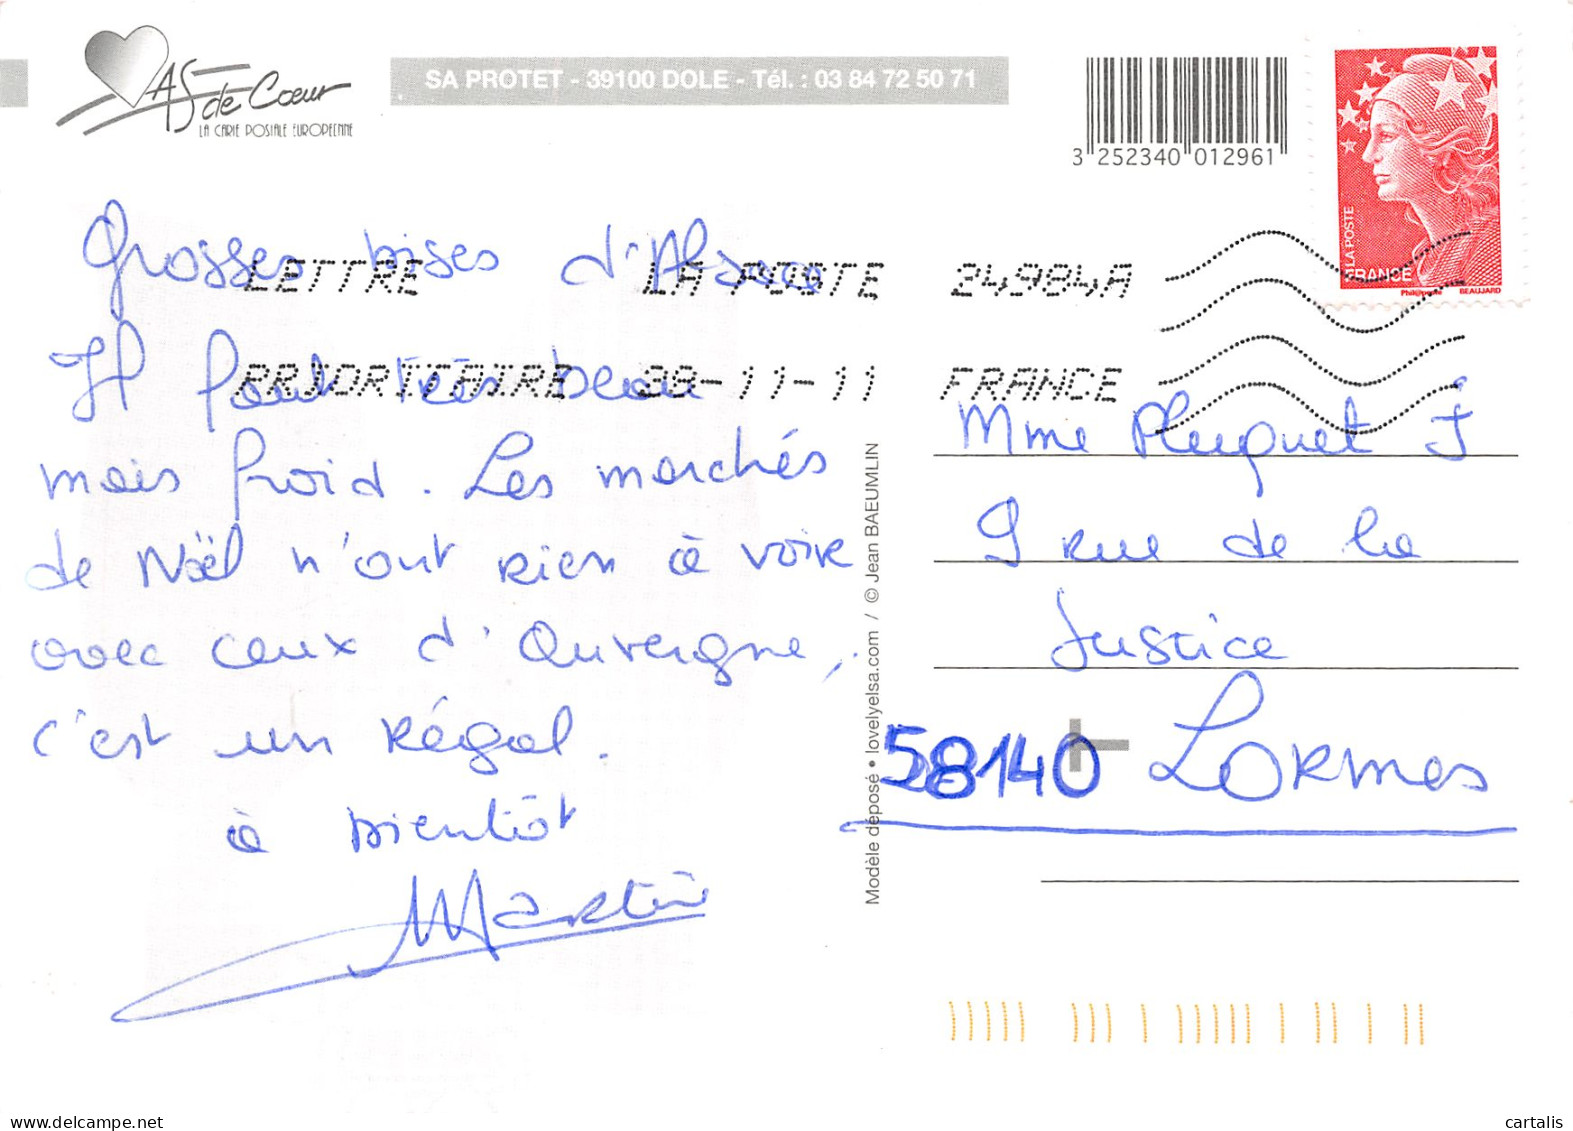 AS de Cœur
LA CARTE POSTALE EUROPEENNE
SA PROTET - 39100 DOLE - Tél. : 03 84 72 50 71
3 252340 012961
LA POSTE
FRANCE
Phil@poste BEAUJARD
LETTRE LA POSTE 24984A
PRIORITAIRE -11-11 FRANCE
Grosses bises d'Alsace
Il fait très beau
mais froid. Les marchés
de Noël n'ont rien à voir
avec ceux d'Auvergne,
c'est un régal.
à bientôt
Martine
Modèle déposé • lovelyelsa.com / © Jean BAEUMLIN
Mme Pluquet J
9 rue de la
Justice
58140 Lormes
cartalis
delcampe.net